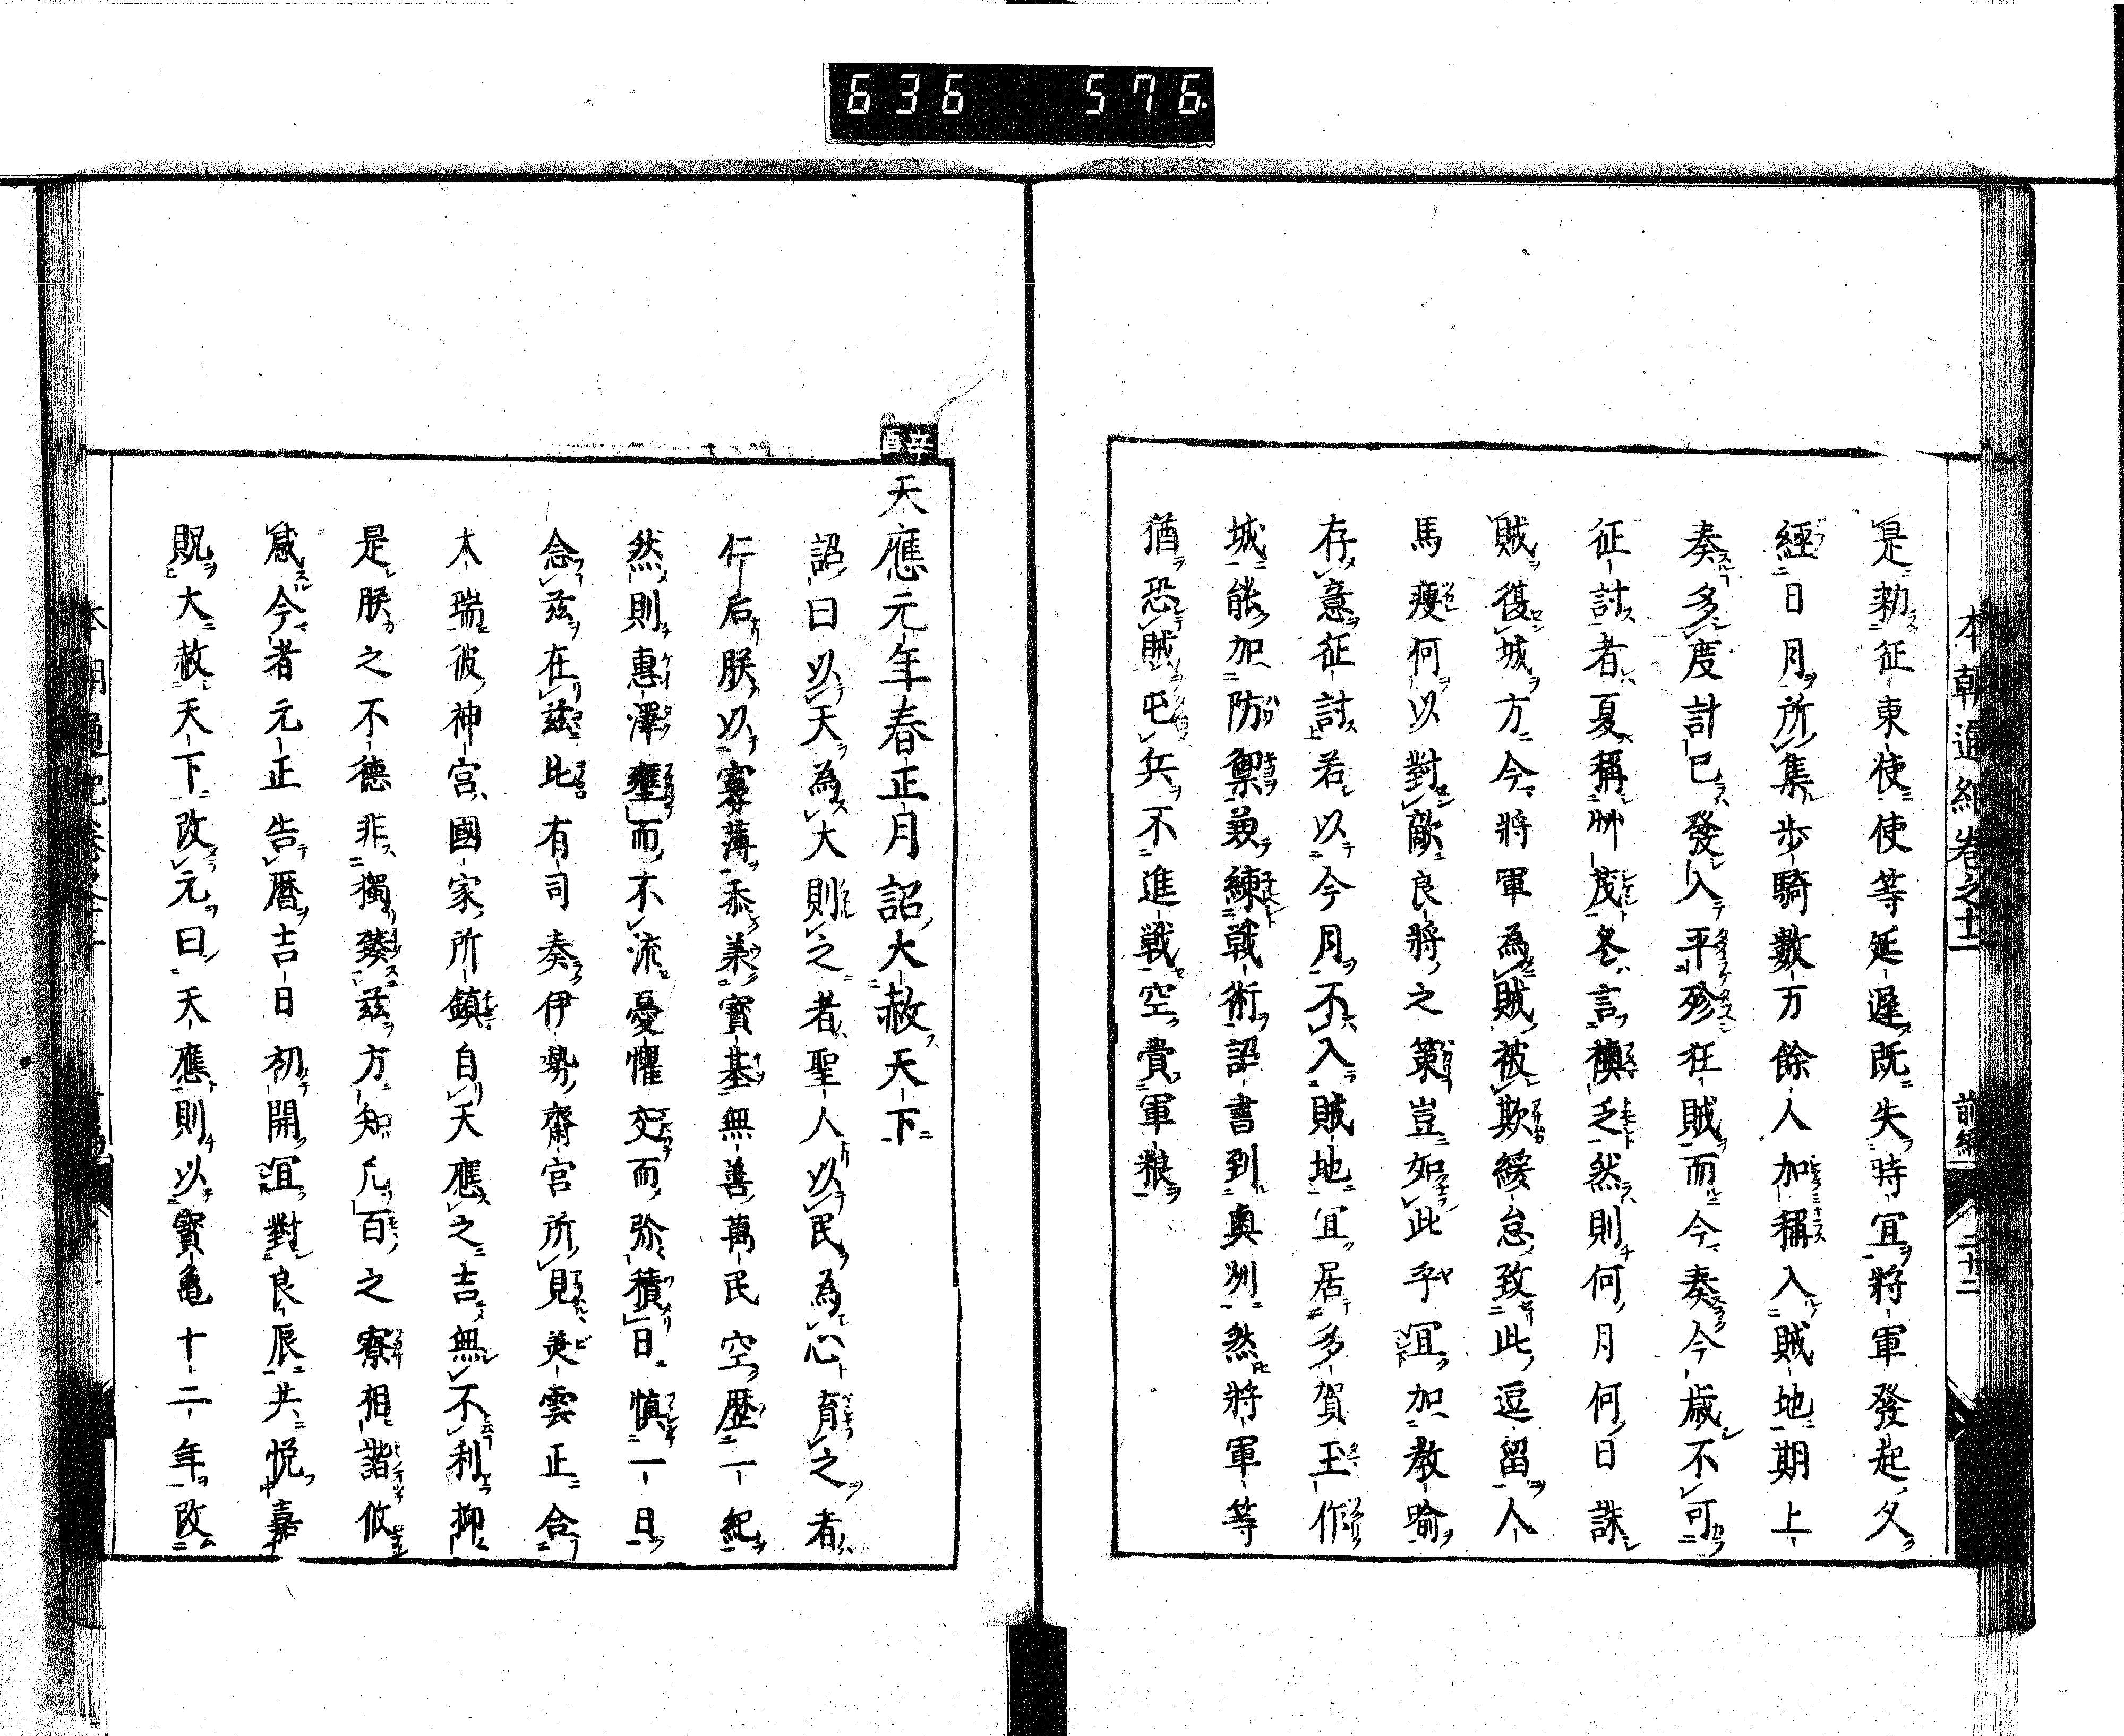 636 576
本朝通紀卷之十二 前編 二十二
是勅征東使使等延遲既失時宜將軍發起久
經日月所集步騎數万餘人加稱入賊地期上
奏多度計已發入平殄狂賊而今奏今歲不可
征討者夏稱艸茂冬言襖乏然則何月何日誅
賊復城方今將軍為賊被欺緩怠致此逗留人
馬瘦何以對敵良將之策豈如此乎宜加教喻
存意征討若以今月不入賊地宜居多賀玉作
城能加防禦兼練戰術詔書到奧州然將軍等
猶恐賊屯兵不進戰空費軍粮
辛酉
天應元年春正月詔大赦天下
詔曰以天為大則之者聖人以民為心育之者
仁后朕以寡薄忝業寶基無善萬民空歷一紀
然則惠澤壅而不流憂懼交而弥積日慎一日
念茲在茲比有司奏伊勢齋宮所見美雲正合
大瑞彼神宮國家所鎮自天應之吉無不利抑
是朕之不德非獨臻茲方知凡百之寮相諧攸
感今者元正告曆吉日初開宜對良辰共悅嘉
貺大赦天下改元曰天應則以寶亀十二年改